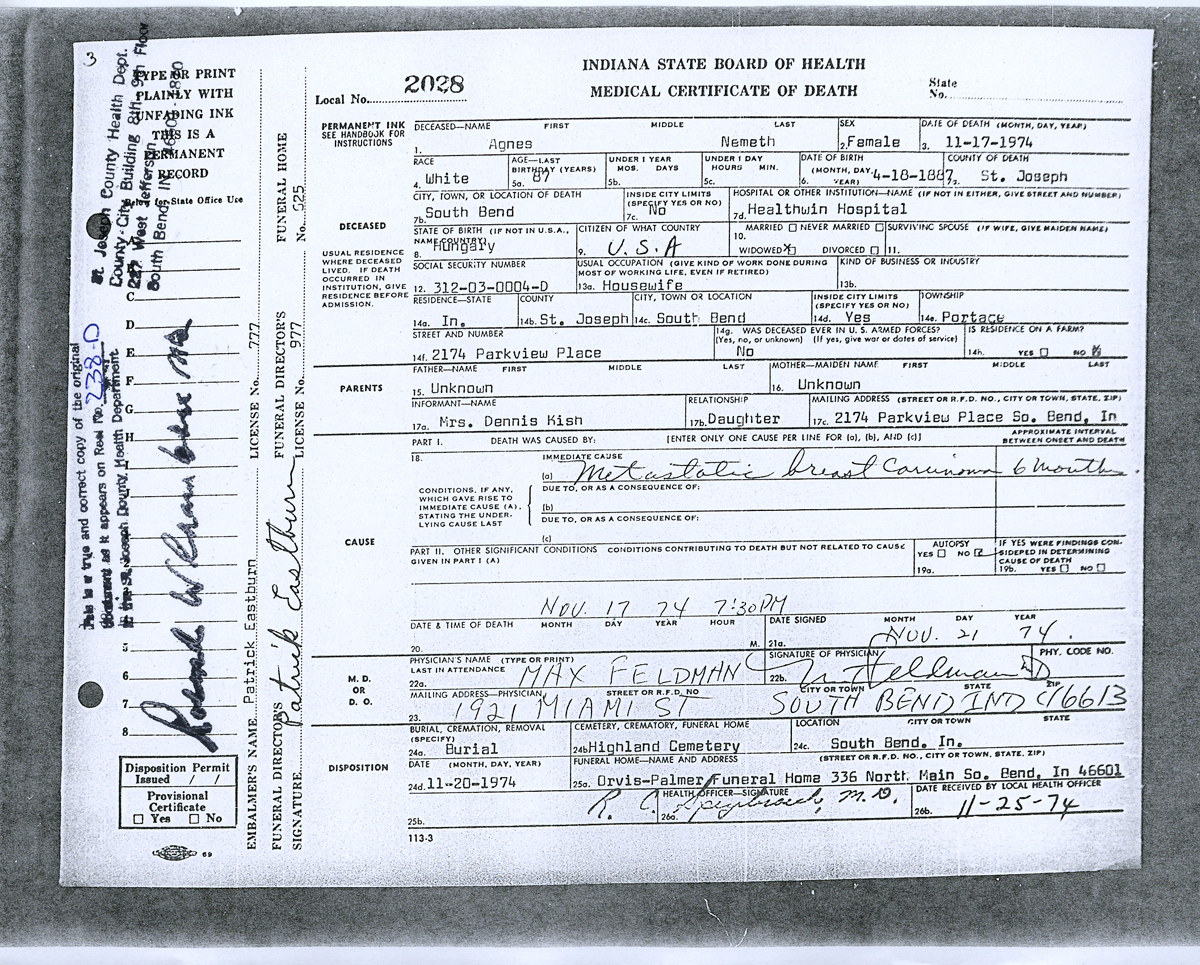 3
TYPE OR PRINT
PLAINLY WITH
UNFADING INK
THIS IS A
PERMANENT
RECORD
Below for State Office Use
St. Joseph County Health Dept.
County-City Building 8th, 9th Floor
227 West Jefferson
South Bend, IN
This is a true and correct copy of the original
document as it appears on Reel No. 238-D
in the St. Joseph County Health Department
C
D
E
F
G
H
5
6
7
8
Disposition Permit
Issued / /
Provisional
Certificate
☐ Yes ☐ No
69
EMBALMER'S NAME Patrick Eastburn LICENSE No. 777
FUNERAL DIRECTOR'S SIGNATURE Patrick Eastburn
FUNERAL DIRECTOR'S LICENSE No. 977
FUNERAL HOME No. 625
INDIANA STATE BOARD OF HEALTH
MEDICAL CERTIFICATE OF DEATH
Local No. 2028
State No.
PERMANENT INK
SEE HANDBOOK FOR
INSTRUCTIONS
DECEASED—NAME FIRST MIDDLE LAST SEX DATE OF DEATH (MONTH, DAY, YEAR)
1. Agnes Nemeth 2. Female 3. 11-17-1974
RACE AGE—LAST BIRTHDAY (YEARS) UNDER 1 YEAR MOS. DAYS UNDER 1 DAY HOURS MIN. DATE OF BIRTH (MONTH, DAY, YEAR) COUNTY OF DEATH
4. White 5a. 87 5b. 5c. 6. 4-18-1887 7a. St. Joseph
CITY, TOWN, OR LOCATION OF DEATH INSIDE CITY LIMITS (SPECIFY YES OR NO) HOSPITAL OR OTHER INSTITUTION—NAME (IF NOT IN EITHER, GIVE STREET AND NUMBER)
7b. South Bend 7c. No 7d. Healthwin Hospital
DECEASED
STATE OF BIRTH (IF NOT IN U.S.A., NAME COUNTRY) CITIZEN OF WHAT COUNTRY 10. MARRIED ☐ NEVER MARRIED ☐ SURVIVING SPOUSE (IF WIFE, GIVE MAIDEN NAME)
8. Hungary 9. U.S.A WIDOWED ☒ DIVORCED ☐ 11.
USUAL RESIDENCE
WHERE DECEASED
LIVED. IF DEATH
OCCURRED IN
INSTITUTION, GIVE
RESIDENCE BEFORE
ADMISSION.
SOCIAL SECURITY NUMBER USUAL OCCUPATION (GIVE KIND OF WORK DONE DURING MOST OF WORKING LIFE, EVEN IF RETIRED) KIND OF BUSINESS OR INDUSTRY
12. 312-03-0004-D 13a. Housewife 13b.
RESIDENCE—STATE COUNTY CITY, TOWN OR LOCATION INSIDE CITY LIMITS (SPECIFY YES OR NO) TOWNSHIP
14a. In. 14b. St. Joseph 14c. South Bend 14d. Yes 14e. Portage
STREET AND NUMBER 14g. WAS DECEASED EVER IN U.S. ARMED FORCES? (Yes, no, or unknown) (If yes, give war or dates of service) IS RESIDENCE ON A FARM?
14f. 2174 Parkview Place No 14h. YES ☐ NO ☒
PARENTS
FATHER—NAME FIRST MIDDLE LAST MOTHER—MAIDEN NAME FIRST MIDDLE LAST
15. Unknown 16. Unknown
INFORMANT—NAME RELATIONSHIP MAILING ADDRESS (STREET OR R.F.D. NO., CITY OR TOWN, STATE, ZIP)
17a. Mrs. Dennis Kish 17b. Daughter 17c. 2174 Parkview Place So. Bend, In
PART I. DEATH WAS CAUSED BY: [ENTER ONLY ONE CAUSE PER LINE FOR (a), (b), AND (c)] APPROXIMATE INTERVAL BETWEEN ONSET AND DEATH
18. IMMEDIATE CAUSE
(a) Metastatic breast Carcinoma 6 months.
CONDITIONS, IF ANY,
WHICH GAVE RISE TO
IMMEDIATE CAUSE (A),
STATING THE UNDER-
LYING CAUSE LAST
DUE TO, OR AS A CONSEQUENCE OF:
(b)
DUE TO, OR AS A CONSEQUENCE OF:
(c)
CAUSE
PART II. OTHER SIGNIFICANT CONDITIONS CONDITIONS CONTRIBUTING TO DEATH BUT NOT RELATED TO CAUSE GIVEN IN PART I (A)
AUTOPSY YES ☐ NO ☑ 19a.
IF YES WERE FINDINGS CONSIDERED IN DETERMINING CAUSE OF DEATH 19b. YES ☐ NO ☐
NOV. 17 74 7:30PM
DATE & TIME OF DEATH MONTH DAY YEAR HOUR DATE SIGNED MONTH DAY YEAR
20. M. 21a. NOV. 21 74.
M. D.
OR
D. O.
PHYSICIAN'S NAME (TYPE OR PRINT) LAST IN ATTENDANCE SIGNATURE OF PHYSICIAN PHY. CODE NO.
22a. MAX FELDMAN 22b. M Feldman MD
MAILING ADDRESS—PHYSICIAN STREET OR R.F.D. NO CITY OR TOWN STATE ZIP
23. 1921 MIAMI ST SOUTH BEND IND 46613
DISPOSITION
BURIAL, CREMATION, REMOVAL (SPECIFY) CEMETERY, CREMATORY, FUNERAL HOME LOCATION CITY OR TOWN STATE
24a. Burial 24b Highland Cemetery 24c. South Bend. In.
DATE (MONTH, DAY, YEAR) FUNERAL HOME—NAME AND ADDRESS (STREET OR R.F.D. NO., CITY OR TOWN, STATE, ZIP)
24d. 11-20-1974 25a. Orvis-Palmer Funeral Home 336 North Main So. Bend, In 46601
25b. HEALTH OFFICER—SIGNATURE DATE RECEIVED BY LOCAL HEALTH OFFICER
26a. R. C. M.D. 26b. 11-25-74
113-3